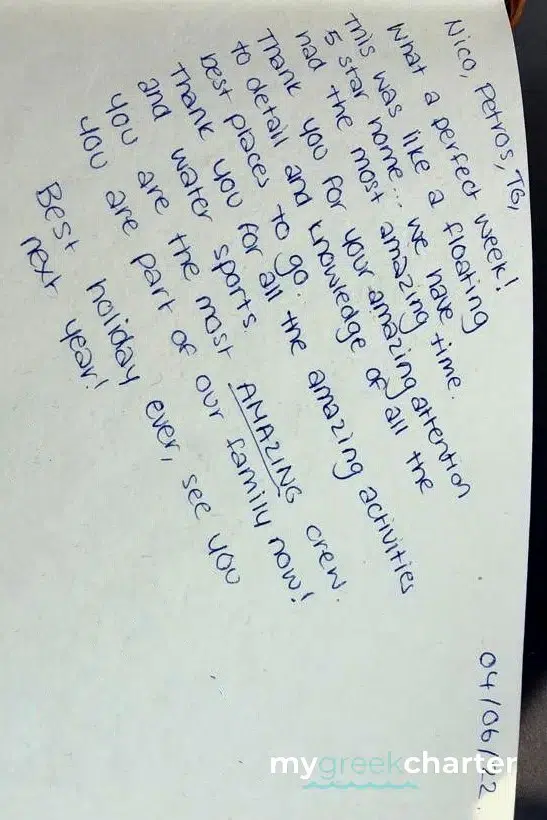 04/06/22
Nico, Petros, TG,
What a perfect week!
This was like a floating
5 star home... we have
had the most amazing time.
Thank you for your amazing attention
to detail and knowledge of all the
best places to go.
Thank you for all the amazing activities
and water sports
You are the most AMAZING crew.
You are part of our family now!
Best holiday ever, see you
next year!
mygreekcharter